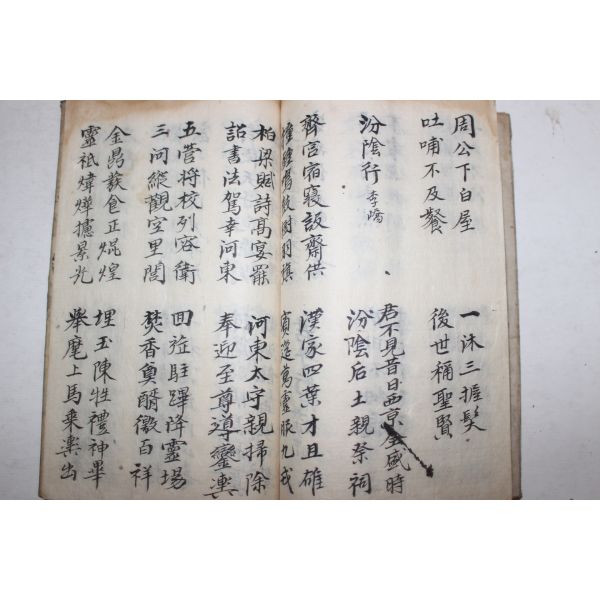 周公下白屋
吐哺不及餐
一沐三握髮
後世稱聖賢
汾陰行 李嶠
君不見昔日西京全盛時
汾陰后土親祭祠
齊宮宿寢設齋供
樹羽旗
漢家四葉才且雄
賓筵萬靈服九戎
柏梁賦詩高宴罷
詔書法駕幸河東
河東太守親掃除
奉迎至尊導鑾輿
五營將校列容衛
三河縱觀空里閭
回旌駐蹕降靈場
焚香奠醑徼百祥
金鼎發色正焜煌
靈祇煒燁攄景光
埋玉陳牲禮神畢
舉麾上馬乘輿出